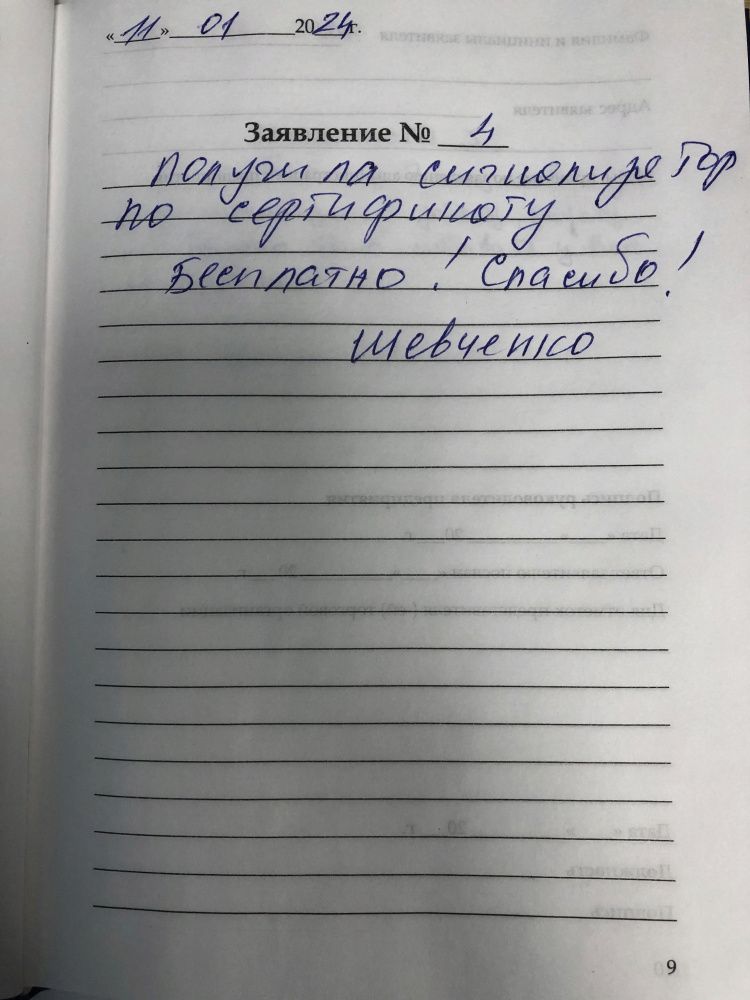 «11» 01 2024г.
Заявление № 4
Получила сигнализатор
по сертификату
Бесплатно! Спасибо!
Шевченко
9